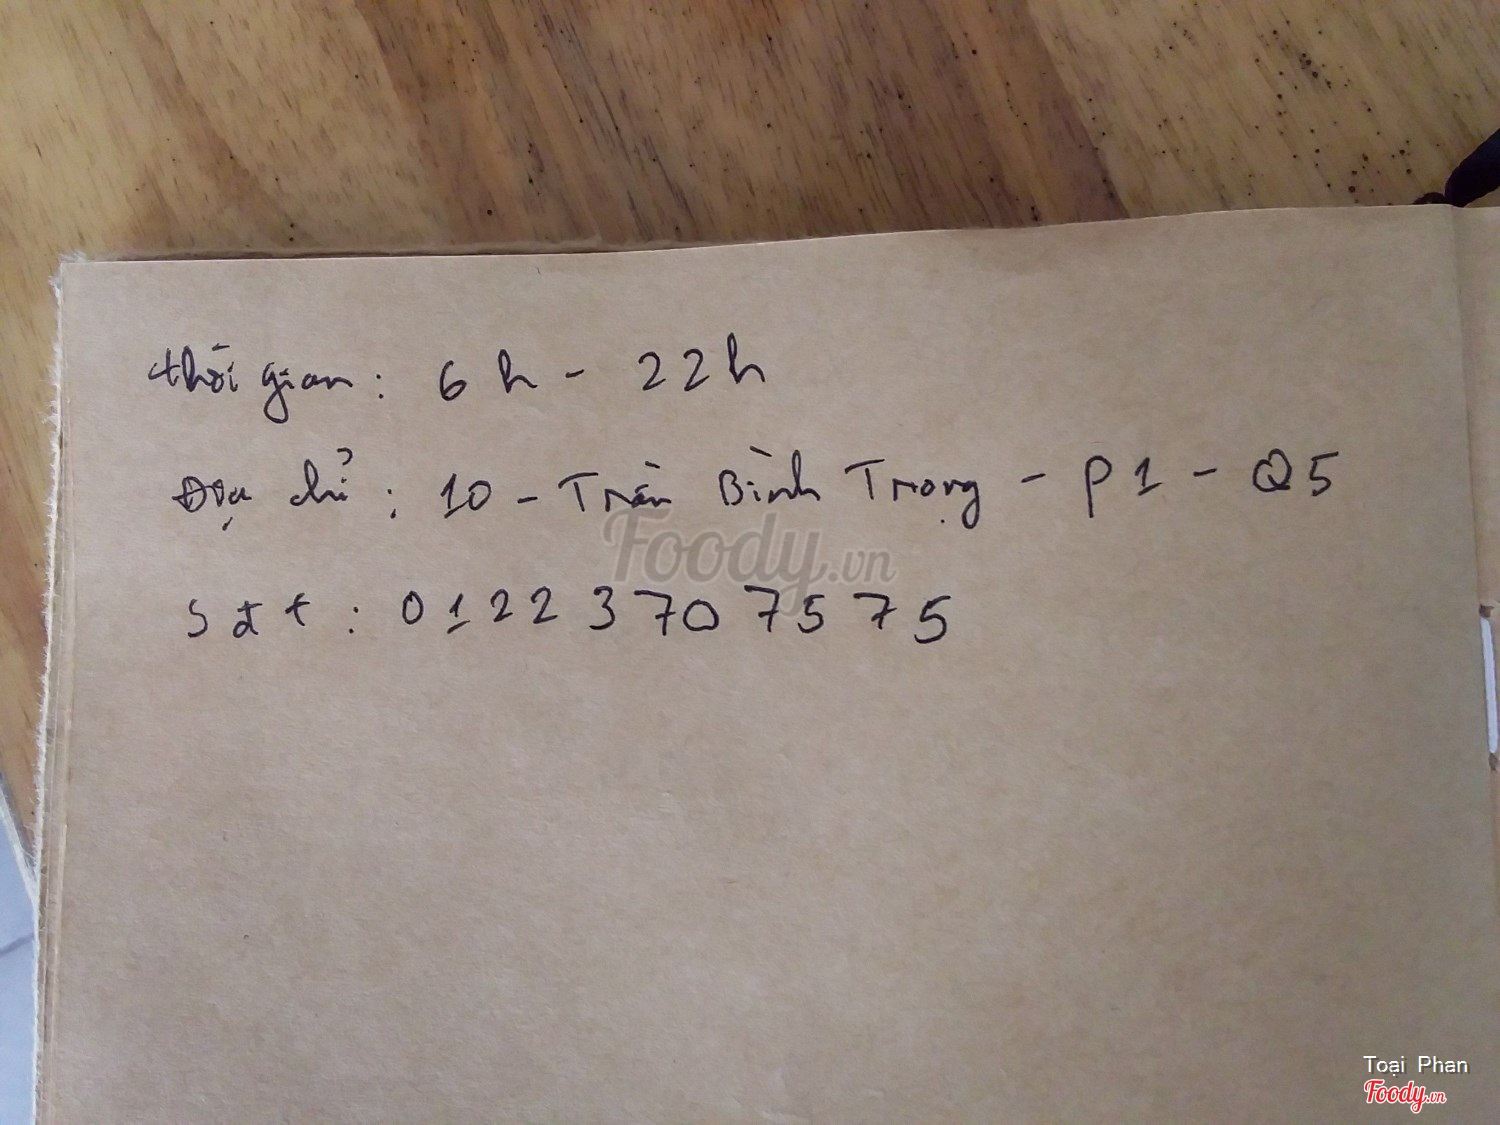 thời gian: 6h - 22h
Địa chỉ: 10 - Trần Bình Trọng - P1 - Q5
Foody.vn
sđt: 01223707575
Toại Phan
Foody.vn